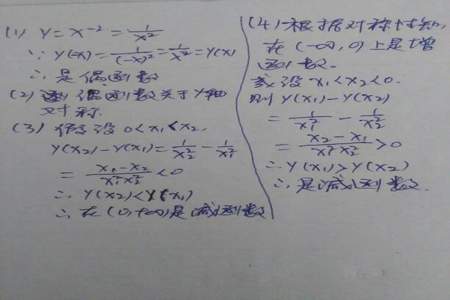 (1) y = x⁻² = 1/x²
∵ y(-x) = 1/(-x)² = 1/x² = y(x)
∴ 是偶函数
(2) 偶函数关于y轴
对称.
(3) 假设 0<x₁<x₂.
y(x₂)-y(x₁) = 1/x₂² - 1/x₁²
= x₁-x₂/x₁²x₂² <0
∴ y(x₂)<y(x₁)
∴ 在(0,+∞)是减函数
(4) 根据对称性知,
在(-∞,0)上是增
函数.
设 x₁<x₂<0.
则 y(x₁)-y(x₂)
= 1/x₁² - 1/x₂²
= x₂-x₁/x₁²x₂² >0
∴ y(x₁)>y(x₂)
∴ 是减函数.